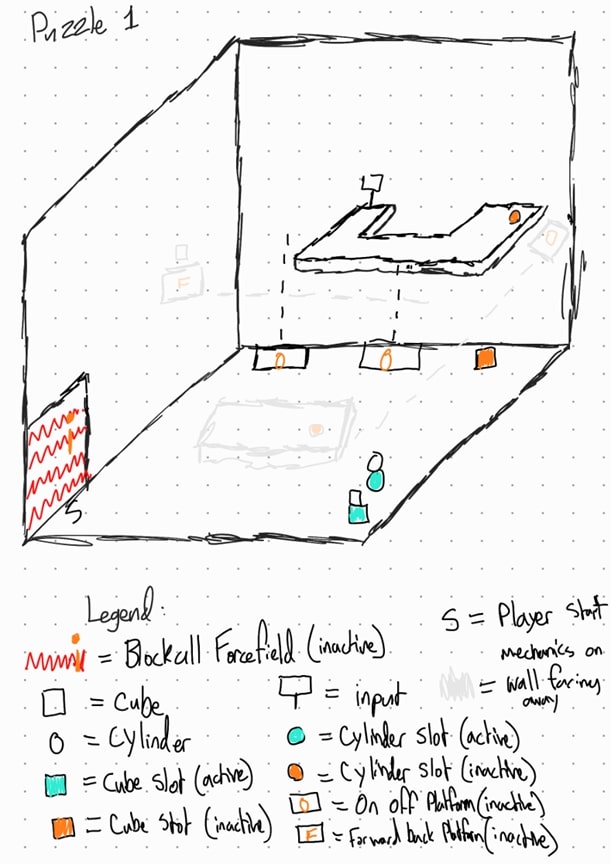 Puzzle 1
F
O
O
O
S
Legend:
= Blockall Forcefield (inactive)
= Cube
= Cylinder
= Cube Slot (active)
= Cube Slot (inactive)
= input
= Cylinder slot (active)
= Cylinder slot (inactive)
O = On off Platform (inactive)
F = Forward back Platform (inactive)
S = Player Start
mechanics on
= wall facing
away